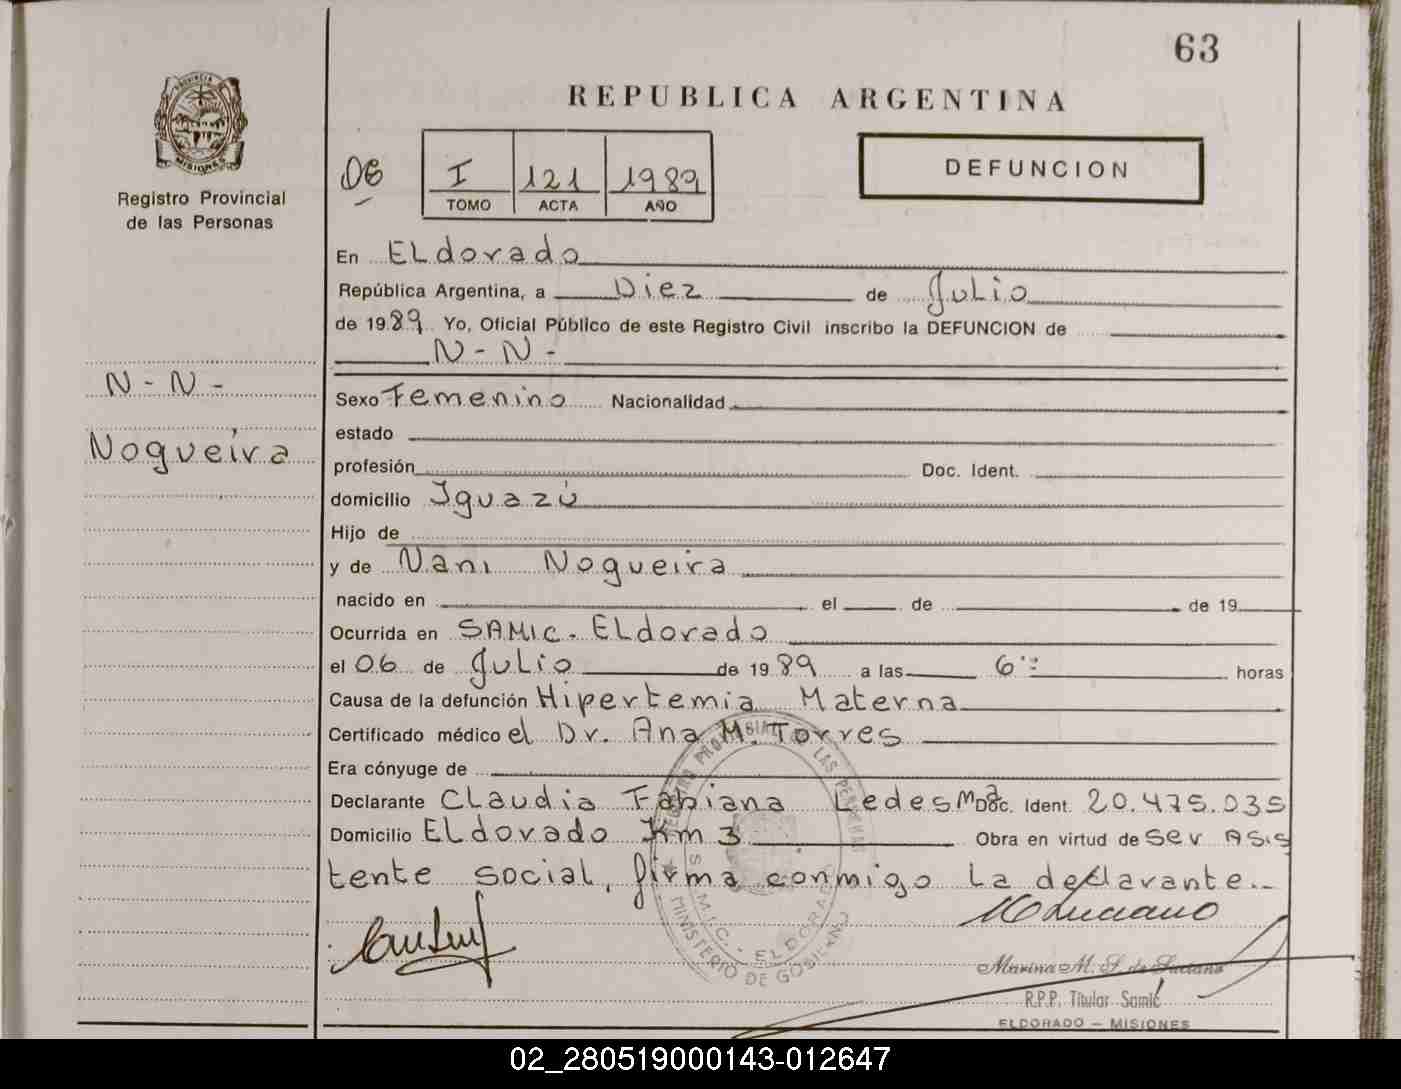 63
REPUBLICA ARGENTINA
PROVINCIA DE
MISIONES
Registro Provincial
de las Personas
DE
I 121 1989
TOMO ACTA AÑO
DEFUNCION
En ELdorado
República Argentina, a Diez de Julio
de 1989 Yo, Oficial Público de este Registro Civil inscribo la DEFUNCION de
N - N -
N - N -
Nogueira
Sexo Femenino Nacionalidad
estado
profesión Doc. Ident.
domicilio Iguazú
Hijo de
y de Nani Nogueira
nacido en el de de 19
Ocurrida en SAMIC. ELdorado
el 06 de Julio de 1989 a las 6 horas
Causa de la defunción Hipertemia Materna
Certificado médico el Dr. Ana M. Torres
Era cónyuge de
Declarante CLaudia Fabiana Ledesma Doc. Ident. 20.475.035
Domicilio ELdorado Km 3 Obra en virtud de ser Asis
tente social, firma conmigo La declarante.-
REGISTRO PROVINCIAL DE LAS PERSONAS
S.A.M.I.C. - ELDORADO
MINISTERIO DE GOBIERNO
Marina M. S. de Luciano
R.P.P. Titular Samic
ELDORADO - MISIONES
02_280519000143-012647